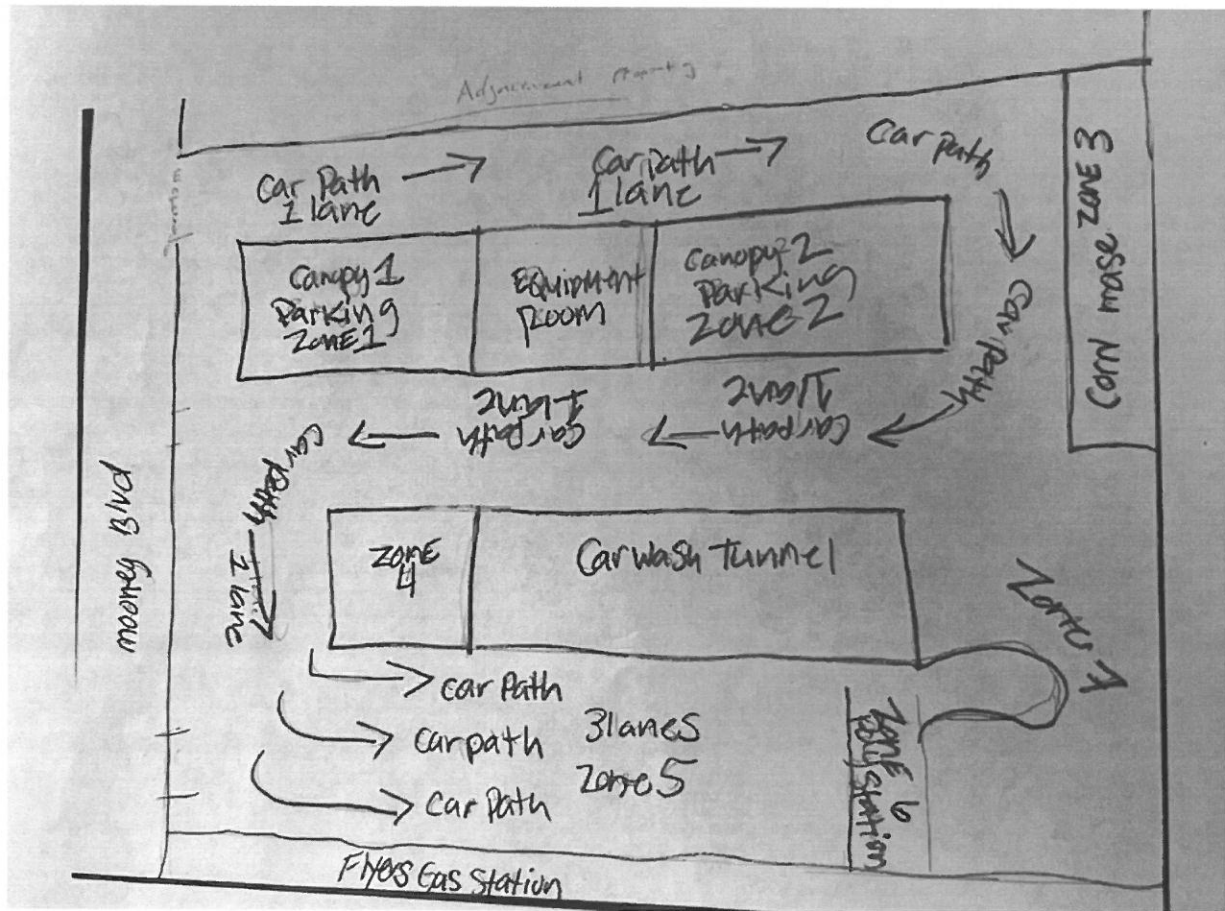 Car Path
1 lane
Car Path
1 lane
Car path
Corn mase ZONE 3
Canopy 1
Parking
ZONE 1
EQUIPMENT
ROOM
Canopy 2
Parking
ZONE 2
Car Path
Car Path
1 lane
Car Path
1 lane
Car Path
1 lane
mooney Blvd
ZONE
4
Car Wash Tunnel
Car Path
Car path
Car Path
3 lanes
Zone 5
ZONE 6
Poly Station
Flyers Gas Station